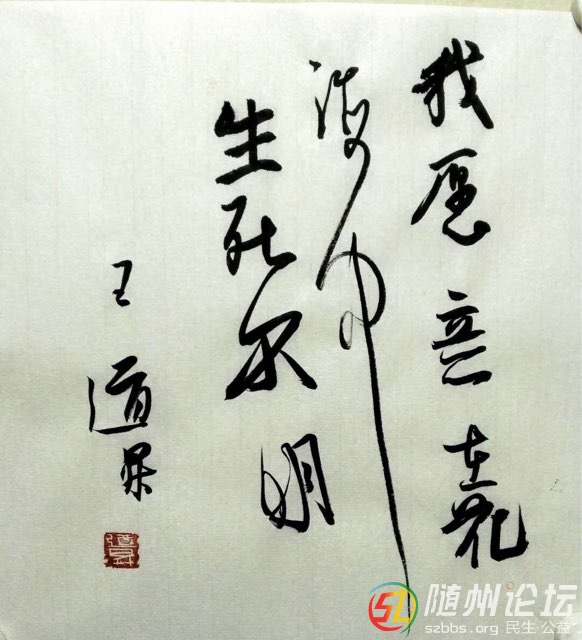 我愿意在花
海中
生死不明
王道
随州论坛
szbbs.org 民生·公益